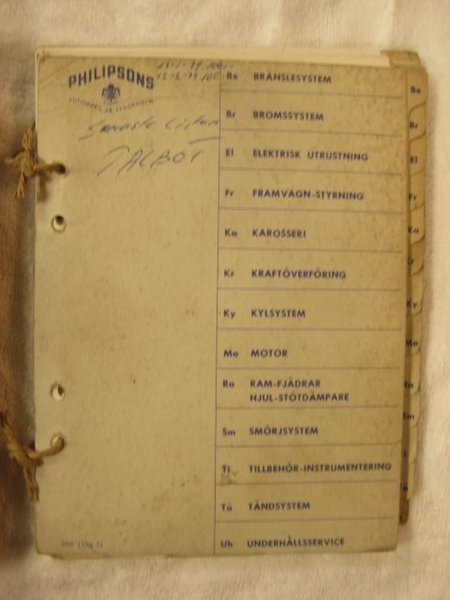 PHILIPSONS
AUTOMOBIL AB STOCKHOLM
Senaste Listan
TALBOT
Be BRÄNSLESYSTEM
Br BROMSSYSTEM
El ELEKTRISK UTRUSTNING
Fr FRAMVAGN-STYRNING
Ka KAROSSERI
Kr KRAFTÖVERFÖRING
Ky KYLSYSTEM
Mo MOTOR
Ra RAM-FJÄDRAR
HJUL-STÖTDÄMPARE
Sm SMÖRJSYSTEM
Ti TILLBEHÖR-INSTRUMENTERING
Tä TÄNDSYSTEM
Uh UNDERHÅLLSSERVICE
Be
Br
El
Fr
Ka
Kr
Ky
Mo
Ra
Sm